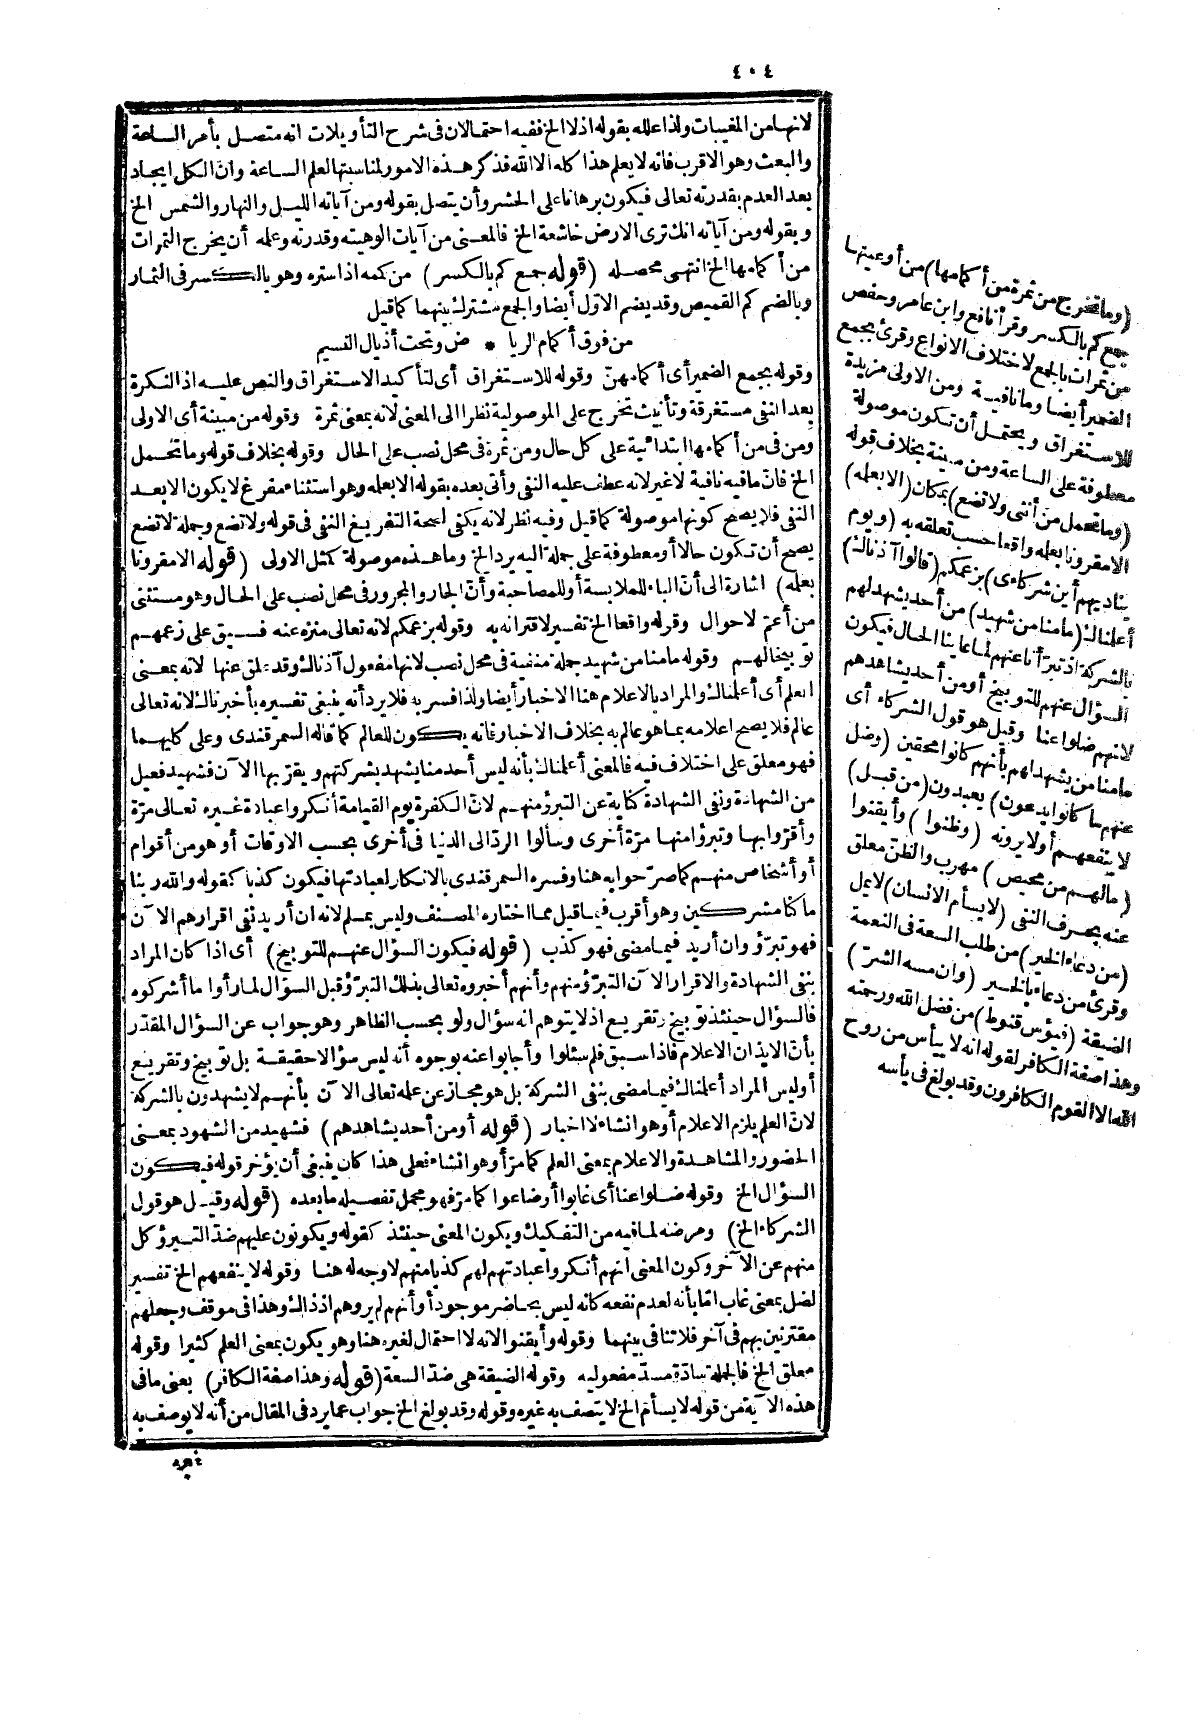 ٤٠٤
لانها من المغيبات ولذا علله بقوله اذ لا الخ ففيه احتمالان فى شرح التأويلات انه متصل بأمر الساعة
والبعث وهو الاقرب فانه لا يعلم هذا كله الا الله فذكر هذه الامور لمناسبتها لعلم الساعة وان الكل ايجاد
بعد العدم بقدرته تعالى فيكون برهانا على الحشر وأن يتصل بقوله ومن آياته الليل والنهار والشمس الخ
وبقوله ومن آياته انك ترى الارض خاشعة الخ فالمعنى من آيات الوهيته وقدرته وعلمه أن يخرج الثمرات
من أكمامها الخ انتهى محصله (قوله جمع كم بالكسر) من كمه اذا ستره وهو بالكسر فى الثمار
وبالضم كم القميص وقد يضم الاوّل أيضا والجمع مشترك بينهما كما قيل
من فوق أكمام الربا * ض وتحت أذيال النسيم
وقوله بجمع الضمير أى أكمامهنّ وقوله للاستغراق أى لتأكيد الاستغراق والنص عليه اذ النكرة
بعد النفى مستغرقة وتأنيث تخرج على الموصولية نظرا الى المعنى لانه بمعنى ثمرة وقوله من مبينة أى الاولى
ومن فى من أكمامها ابتدائية على كل حال ومن ثمرة فى محل نصب على الحال وقوله بخلاف قوله وما تحمل
الخ فانّ ما فيه نافية لا غير لانه عطف عليه النفى وأتى بعده بقوله الا بعلمه وهو استثناء مفرغ لا يكون الا بعد
النفى فلا يصح كونها موصولة كما قيل وفيه نظر لانه يكفى لصحة التفريغ النفى فى قوله ولا تضع وجملة لا تضع
يصح أن تكون حالا أو معطوفة على جملة اليه يرد الخ وما هذه موصولة كمثل الاولى (قوله الا مقرونا
بعلمه) اشارة الى أنّ الباء للملابسة أو للمصاحبة وأنّ الجار والمجرور فى محل نصب على الحال وهو مستثنى
من أعمّ لاحوال وقوله واقعا الخ تفسير لاقترانه به وقوله بزعمكم لانه تعالى منزه عنه فسيق على زعمهم
توبيخا لهم وقوله ما منا من شهيد جملة منفية فى محل نصب لانها مفعول آذناك وقد علق عنها لانه بمعنى
العلم أى أعلمناك والمراد بالاعلام هنا الاخبار أيضا ولذا فسر به فلا يرد أنه ينبغى تفسيره بأخبرناك لانه تعالى
عالم فلا يصح اعلامه بما هو عالم به بخلاف الاخبار فانه يكون للعالم كما قاله السمرقندى وعلى كليهما
فهو معلق على اختلاف فيه فالمعنى أعلمناك بأنه ليس أحد منا يشهد بشركتهم ويقرّ بها الآن فشهيد فعيل
من الشهادة ونفى الشهادة كناية عن التبرؤ منهم لانّ الكفرة يوم القيامة أنكروا عبادة غيره تعالى مرّة
وأقرّوا بها وتبرؤا منها مرّة أخرى وسألوا الردّ الى الدنيا فى أخرى بحسب الاوقات أو هو من أقوام
أو أشخاص منهم كما صرّحوا به هنا وفسره السمرقندى بالانكار لعبادتها فيكون كذبا كقوله والله ربنا
ما كنا مشركين وهو أقرب فيما قيل مما اختاره المصنف وليس بمسلم لانه ان أريد نفى اقرارهم الآن
فهو تبرّؤ وان أريد فيما مضى فهو كذب (قوله فيكون السؤال عنهم للتوبيخ) أى اذا كان المراد
بنفى الشهادة والاقرار الآن التبرّؤ منهم وأنهم أخبروه تعالى بذلك التبرّؤ قبل السؤال لما رأوا ما أشركوه
فالسؤال حينئذ توبيخ وتقريع اذ لا يتوهم انه سؤال ولو بحسب الظاهر وهو جواب عن السؤال المقدّر
بأنّ الايذان الاعلام فاذا سبق فلم سئلوا وأجابوا عنه بوجوه أنه ليس سؤالا حقيقة بل توبيخ وتقريع
أو ليس المراد أعلمناك فيما مضى بنفى الشركة بل هو مجاز عن علمه تعالى الآن بأنهم لا يشهدون بالشركة
لانّ العلم يلزم الاعلام أو هو انشاء لا اخبار (قوله أو من أحد يشاهدهم) فشهيد من الشهود بمعنى
الحضور والمشاهدة والاعلام بمعنى العلم كما مرّ أو هو انشاء فعلى هذا كان ينبغى أن يؤخر قوله فيكون
السؤال الخ وقوله ضلوا عنا أى غابوا أو ضاعوا كما مرّ فهو مجمل تفصيله ما بعده (قوله وقيل هو قول
الشركاء الخ) ومرضه لما فيه من التفكيك ويكون المعنى حينئذ كقوله ويكونون عليهم ضدّا لتبرؤ كل
منهم عن الآخر وكون المعنى انهم أنكروا عبادتهم لهم كذبا منهم لا وجه له هنا وقوله لا ينفعهم الخ تفسير
لضل بمعنى غاب امّا بأنه لعدم نفعه كانه ليس بحاضر موجود أو أنهم لم يروهم اذ ذاك وهذا فى موقف وجعلهم
مقترنين بهم فى آخر فلا تنافى بينهما وقوله وأيقنوا لانه لا احتمال لغيره هنا وهو يكون بمعنى العلم كثيرا وقوله
معلق الخ فالجملة سادّة مسدّ مفعوليه وقوله الضيقة هى ضدّ السعة (قوله وهذا صفة الكافر) يعنى ما فى
هذه الآية من قوله لا يسأم الخ لا يتصف به غيره وقوله وقد بولغ الخ جواب عما يرد فى المقال من أنه لا يوصف به
(وما تخرج من ثمرة من أكمامها) من أوعيتها
جمع كم بالكسر وقرأ نافع وابن عامر وحفص
من ثمرات بالجمع لاختلاف الانواع وقرئ بجمع
الضمير أيضا وما نافية ومن الاولى مزيدة
للاستغراق ويحتمل أن تكون موصولة
معطوفة على الساعة ومن مبينة بخلاف قوله
(وما تحمل من أنثى ولا تضع) بمكان (الا بعلمه)
الا مقرونا بعلمه واقعا حسب تعلقه به (ويوم
يناديهم أين شركاءى) بزعمكم (قالوا آذناك)
أعلمناك (ما منا من شهيد) من أحد يشهد لهم
بالشركة اذ تبرّأنا عنهم لما عاينا الحال فيكون
السؤال عنهم للتوبيخ أو من أحد يشاهدهم
لانهم ضلوا عنا وقيل هو قول الشركاء أى
ما منا من يشهد لهم بأنهم كانوا محقين (وضل
عنهم ما كانوا يدعون) يعبدون (من قبل)
لا ينفعهم أو لا يرونه (وظنوا) وأيقنوا
(ما لهم من محيص) مهرب والظنّ معلق
عنه بحرف النفى (لا يسأم الانسان) لا يمل
(من دعاء الخير) من طلب السعة فى النعمة
وقرئ من دعاء بالخير (وان مسه الشرّ)
الضيقة (فيؤس قنوط) من فضل الله ورحمته
وهذا صفة الكافر لقوله انه لا ييأس من روح
الله الا القوم الكافرون وقد بولغ فى يأسه